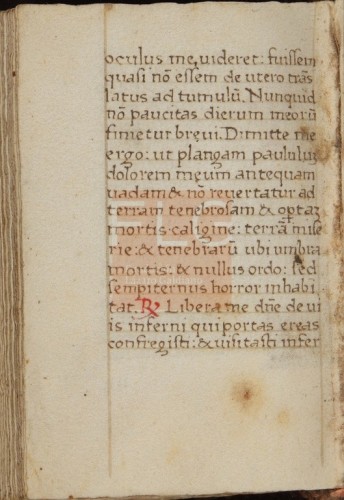 oculus me videret: fuissem
quasi nō essem de utero trās
latus ad tumulū. Nunquid
nō paucitas dierum meorū
finietur brevi. Dimitte me
ergo: ut plangam paululū
dolorem meum antequam
vadam & nō revertatur ad
terram tenebrosam &
mortis caligine: terrā mise
rie: & tenebrarū ubi umbra
mortis: & nullus ordo: sed
sempiternus horror inhabi
tat. ℟ Libera me dn̄e de vi
is inferni qui portas ereas
confregisti: & visitasti infer